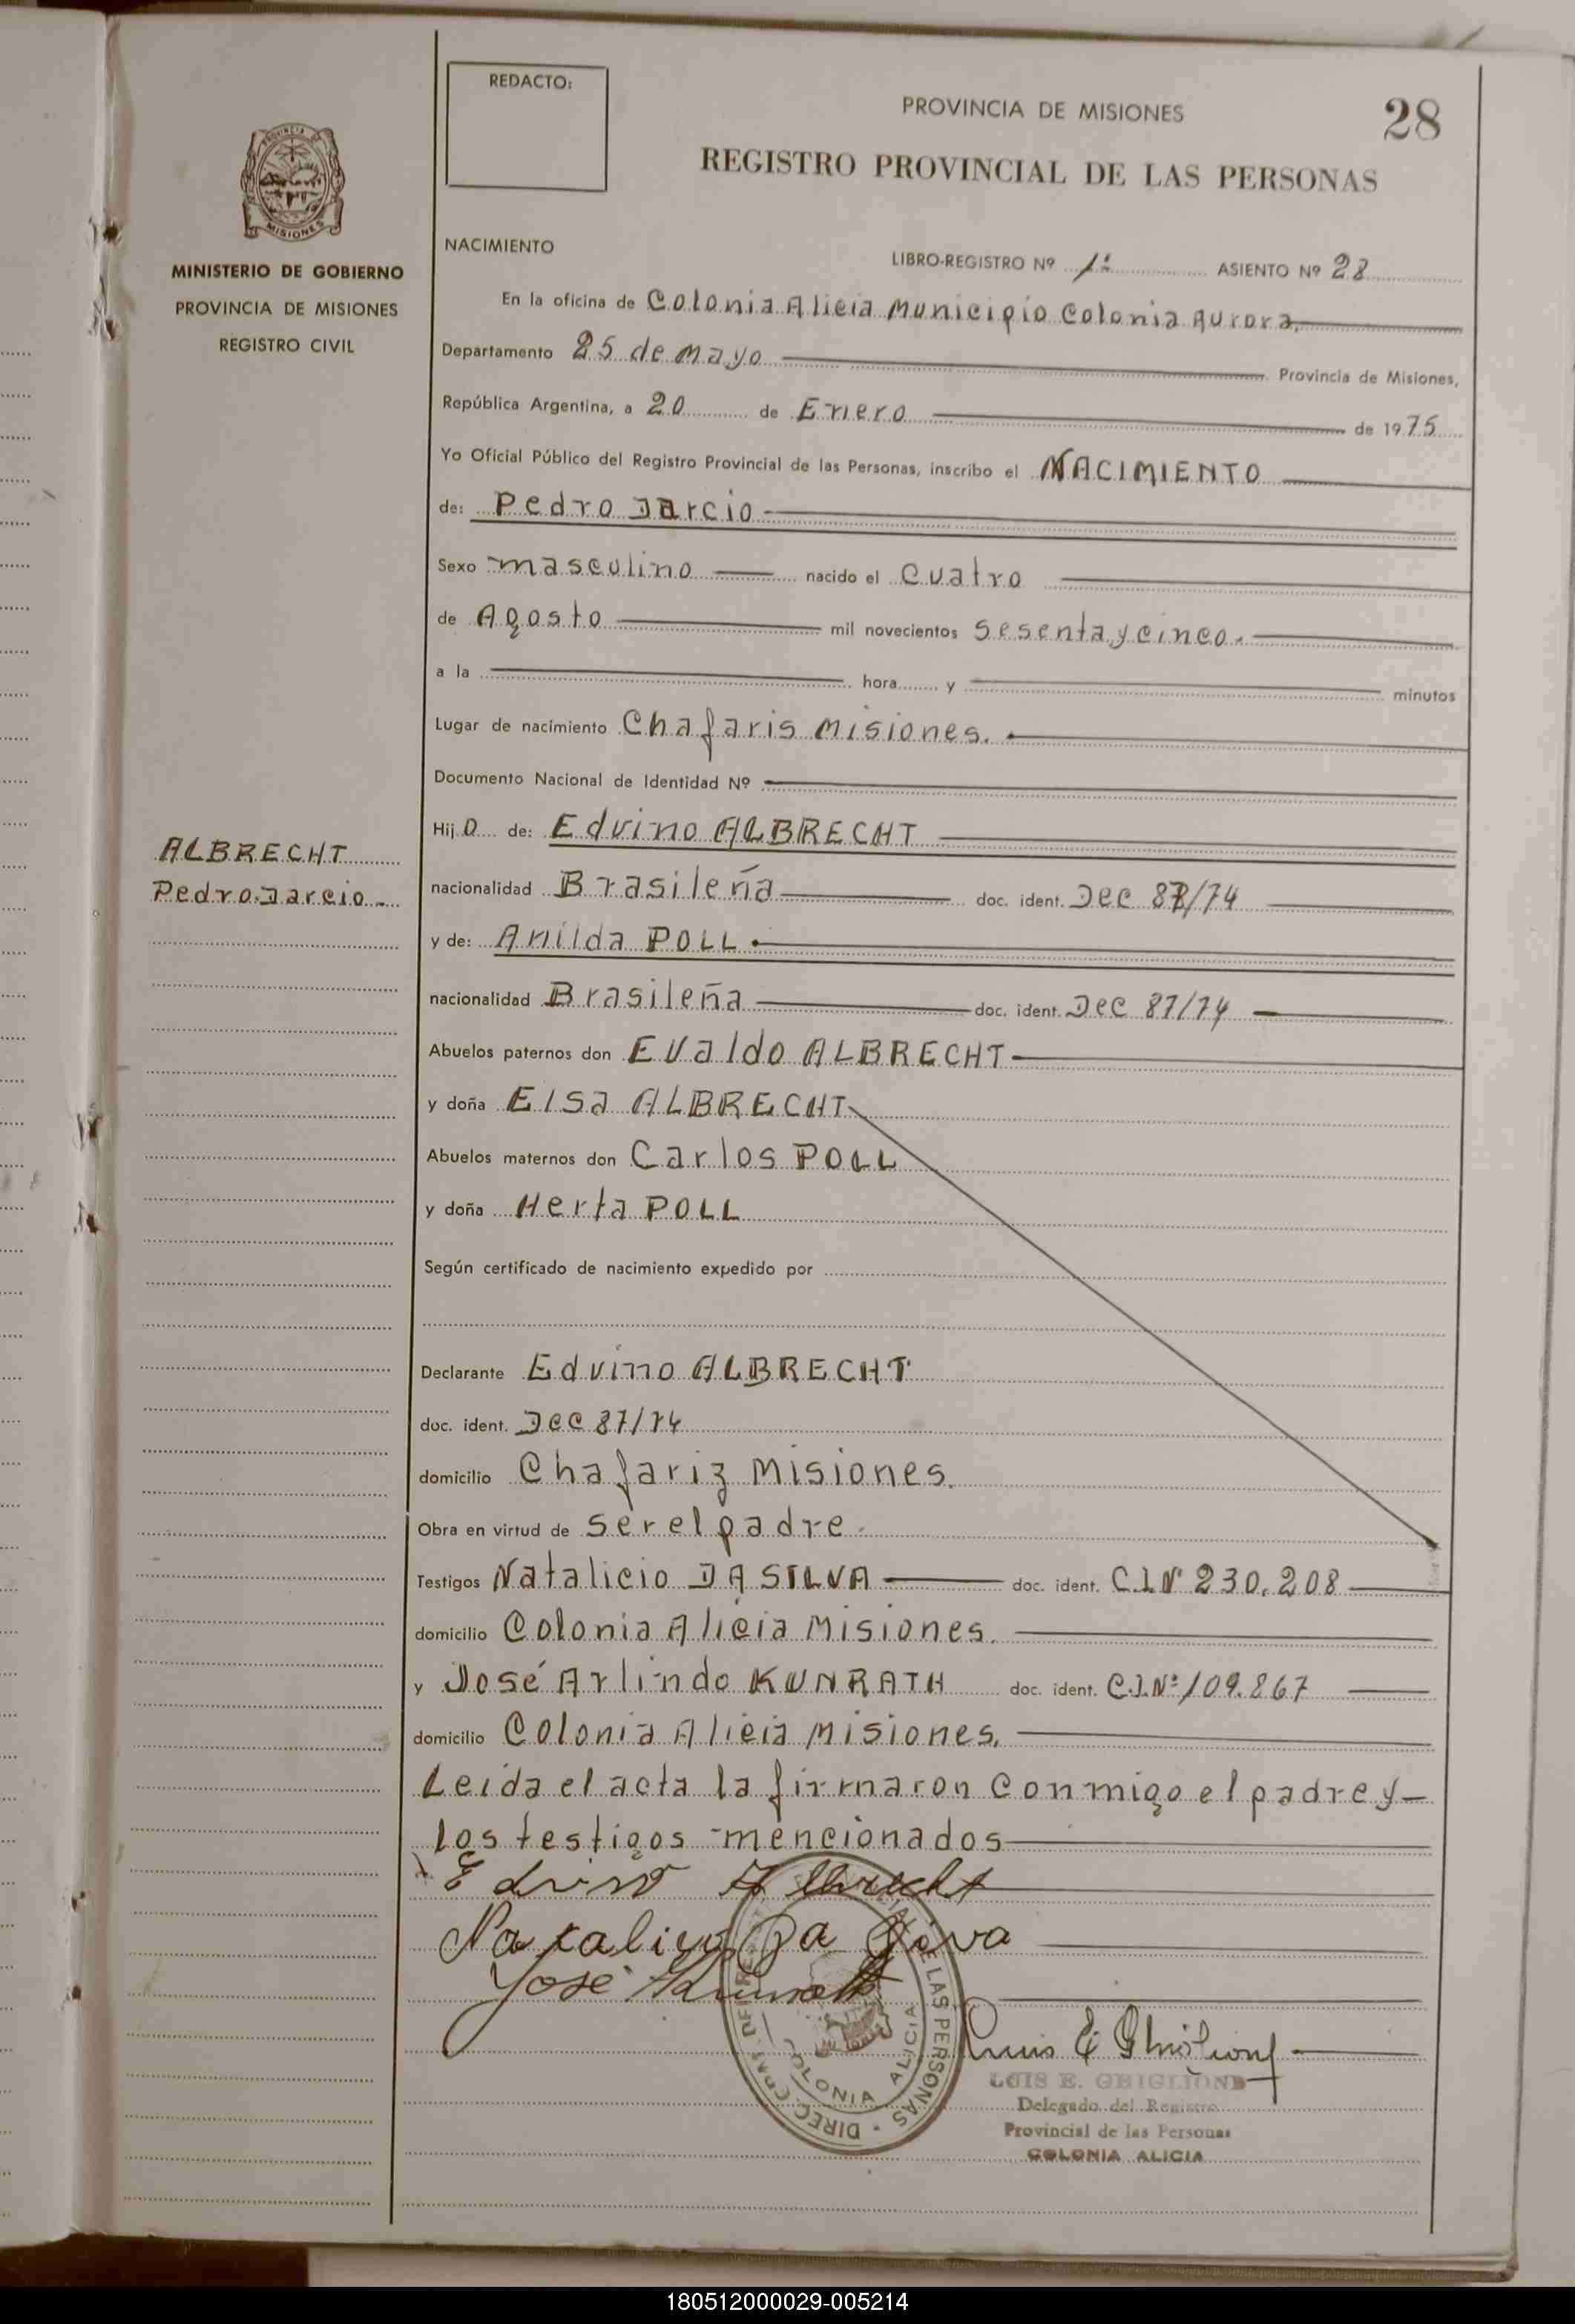 REDACTO:
PROVINCIA DE MISIONES
28
REGISTRO PROVINCIAL DE LAS PERSONAS
PROVINCIA DE
MISIONES
MINISTERIO DE GOBIERNO
PROVINCIA DE MISIONES
REGISTRO CIVIL
NACIMIENTO
LIBRO-REGISTRO Nº 1º ASIENTO Nº 28
En la oficina de Colonia Alicia Municipio Colonia Aurora.
Departamento 25 de Mayo Provincia de Misiones,
República Argentina, a 20 de Enero de 1975
Yo Oficial Público del Registro Provincial de las Personas, inscribo el NACIMIENTO
de: Pedro Darcio
Sexo masculino nacido el cuatro
de Agosto mil novecientos sesenta y cinco.
a la hora y minutos
Lugar de nacimiento Chafaris Misiones.
Documento Nacional de Identidad Nº
Hijo de: Edvino ALBRECHT
ALBRECHT
Pedro Darcio
nacionalidad Brasileña doc. ident. Dec 87/74
y de: Anilda POLL
nacionalidad Brasileña doc. ident. Dec 87/74
Abuelos paternos don Evaldo ALBRECHT
y doña Elsa ALBRECHT
Abuelos maternos don Carlos POLL
y doña Herta POLL
Según certificado de nacimiento expedido por
Declarante Edvino ALBRECHT
doc. ident. Dec 87/74
domicilio Chafariz Misiones.
Obra en virtud de ser el padre.
Testigos Natalicio DA SILVA doc. ident. C.I.Nº 230.208
domicilio Colonia Alicia Misiones.
y José Arlindo KUNRATH doc. ident. C.I.Nº 109.867
domicilio Colonia Alicia Misiones.
Leida el acta la firmaron conmigo el padre y
los testigos mencionados
Edvino Albrecht
Natalicio Da Silva
José Kunrath
DIREC. LAS PERSONAS
COLONIA ALICIA
Luis E Ghiglione
LUIS E. GHIGLIONE
Delegado del Registro
Provincial de las Personas
COLONIA ALICIA
180512000029-005214